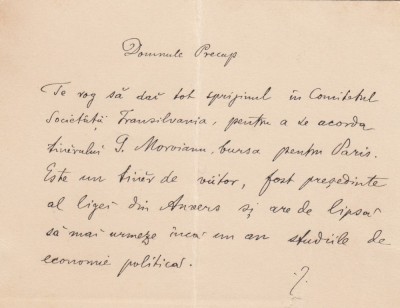 Domnule Precup
Te rog să dai tot sprijinul în Comitetul
Societății Transilvania, pentru a se acorda
tinărului G. Moroianu, bursa pentru Paris.
Este un tinăr de viitor, fost președinte
al ligei din Anvers și are de lipsă
să mai urmeze încă un an studiile de
economie politică.